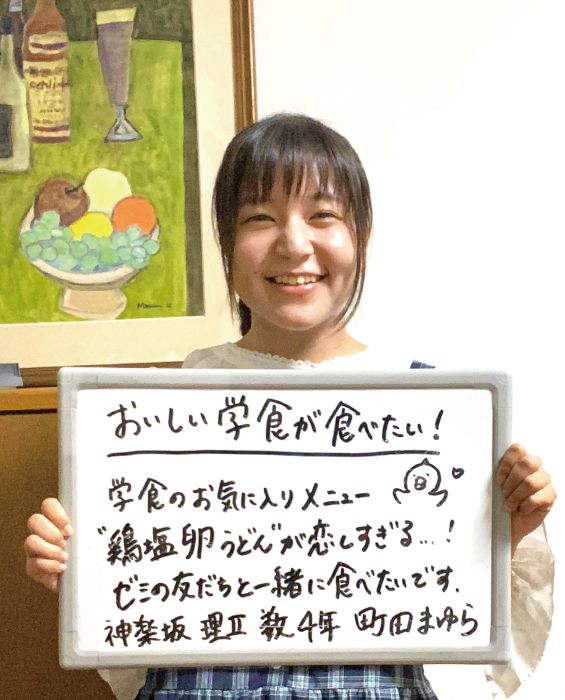 おいしい学食が食べたい!
学食のお気に入りメニュー
"鶏塩卵うどん"が恋しすぎる...!
ゼミの友だちと一緒に食べたいです.
神楽坂 理II 数4年 町田まゆら